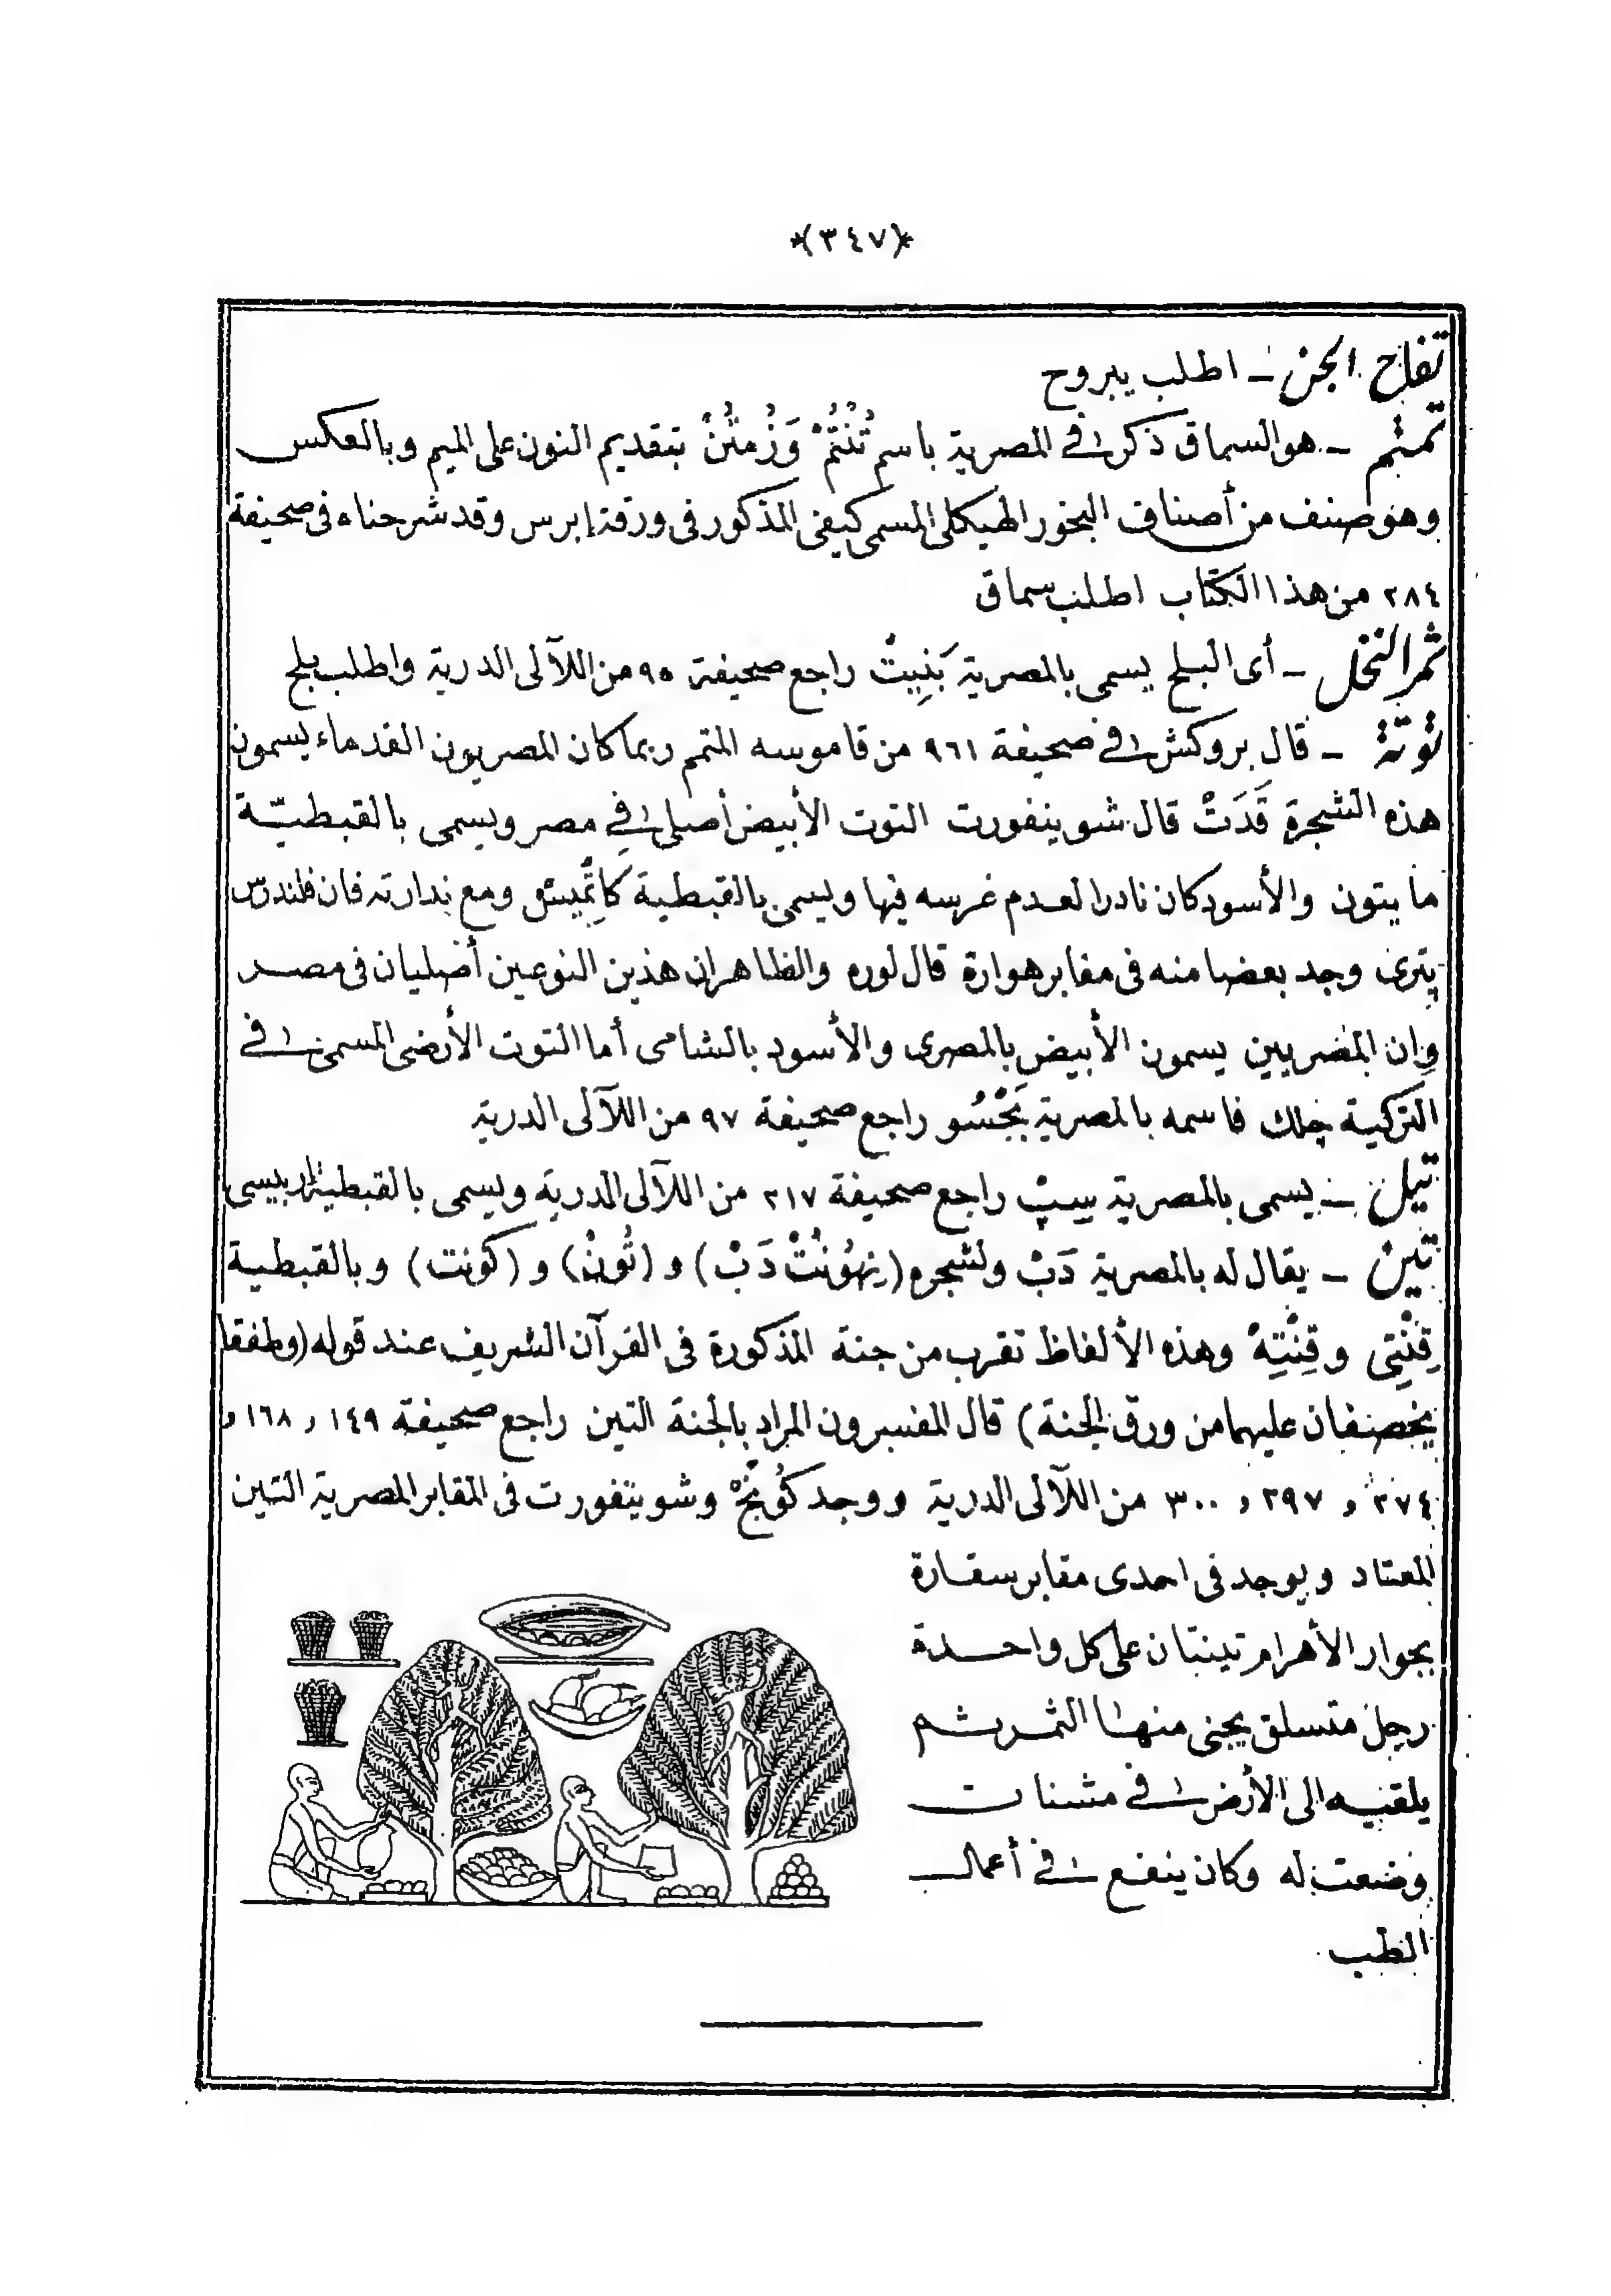 *(٣٤٧)*
تفاح الجن ـ اطلب يبروح
تمتم ـ هو السماق ذكر فى المصرية باسم تُنْتُمْ وَزُمتُنْ بتقديم النون على الميم وبالعكس
وهو صنف من أصناف البخور الهيكلى المسمى كيفى المذكور فى ورقة إبرس وقد شرحناه فى صحيفة
٢٨٤ من هذا الكتاب اطلب سماق
ثمر النخل ـ أى البلح يسمى بالمصرية بَنِيتْ راجع صحيفة ٩٥ من اللآلى الدرية واطلب بلح
توتة ـ قال بروكش فى صحيفة ٩٦١ من قاموسه المتمم ربما كان المصريون القدماء يسمون
هذه الشجرة قَدَتْ قال شوينفورت التوت الأبيض أصلى فى مصر ويسمى بالقبطيّة
مايتون والأسود كان نادرا لعدم غرسه فيها ويسمى بالقبطية ومع ندارته فان فلندرس
پترى وجد بعضا منه فى مقابر هوارة قال لوره والظاهر ان هذين النوعين أصليان فى مصر
وان المصريين يسمون الأبيض بالمصرى والأسود بالشامى أما التوت الأرضى المسمى فى
التركية چلك فاسمه بالمصرية بَجْسُو راجع صحيفة ٩٧ من اللآلى الدرية
تيل ـ يسمى بالمصرية سِپْ راجع صحيفة ٢١٧ من اللآلى الدرية ويسمى بالقبطية اربيسى
تين ـ يقال له بالمصرية دَبْ ولشجره (نِهُونُتْ دَبْ) و (تُونْ) و (كونت) وبالقبطية
قِنْتِى وقِنْتِهْ وهذه الألفاظ تقرب من جنة المذكورة فى القرآن الشريف عند قوله (وطفقا
يخصفان عليهما من ورق الجنة) قال المفسرون المراد بالجنة التين راجع صحيفة ١٤٩ و ١٦٨ و
٢٧٤ و ٢٩٧ و ٣٠٠ من اللآلى الدرية ووجد كُونْجْ وشوينفورت فى المقابر المصرية التين
المعتاد ويوجد فى احدى مقابر سقارة
بجوار الأهرام تينتان على كل واحدة
رجل متسلق يجنى منها الثمر ثم
يلقيه الى الأرض فى مشنات
وضعت له وكان ينفع فى أعمال
الطب